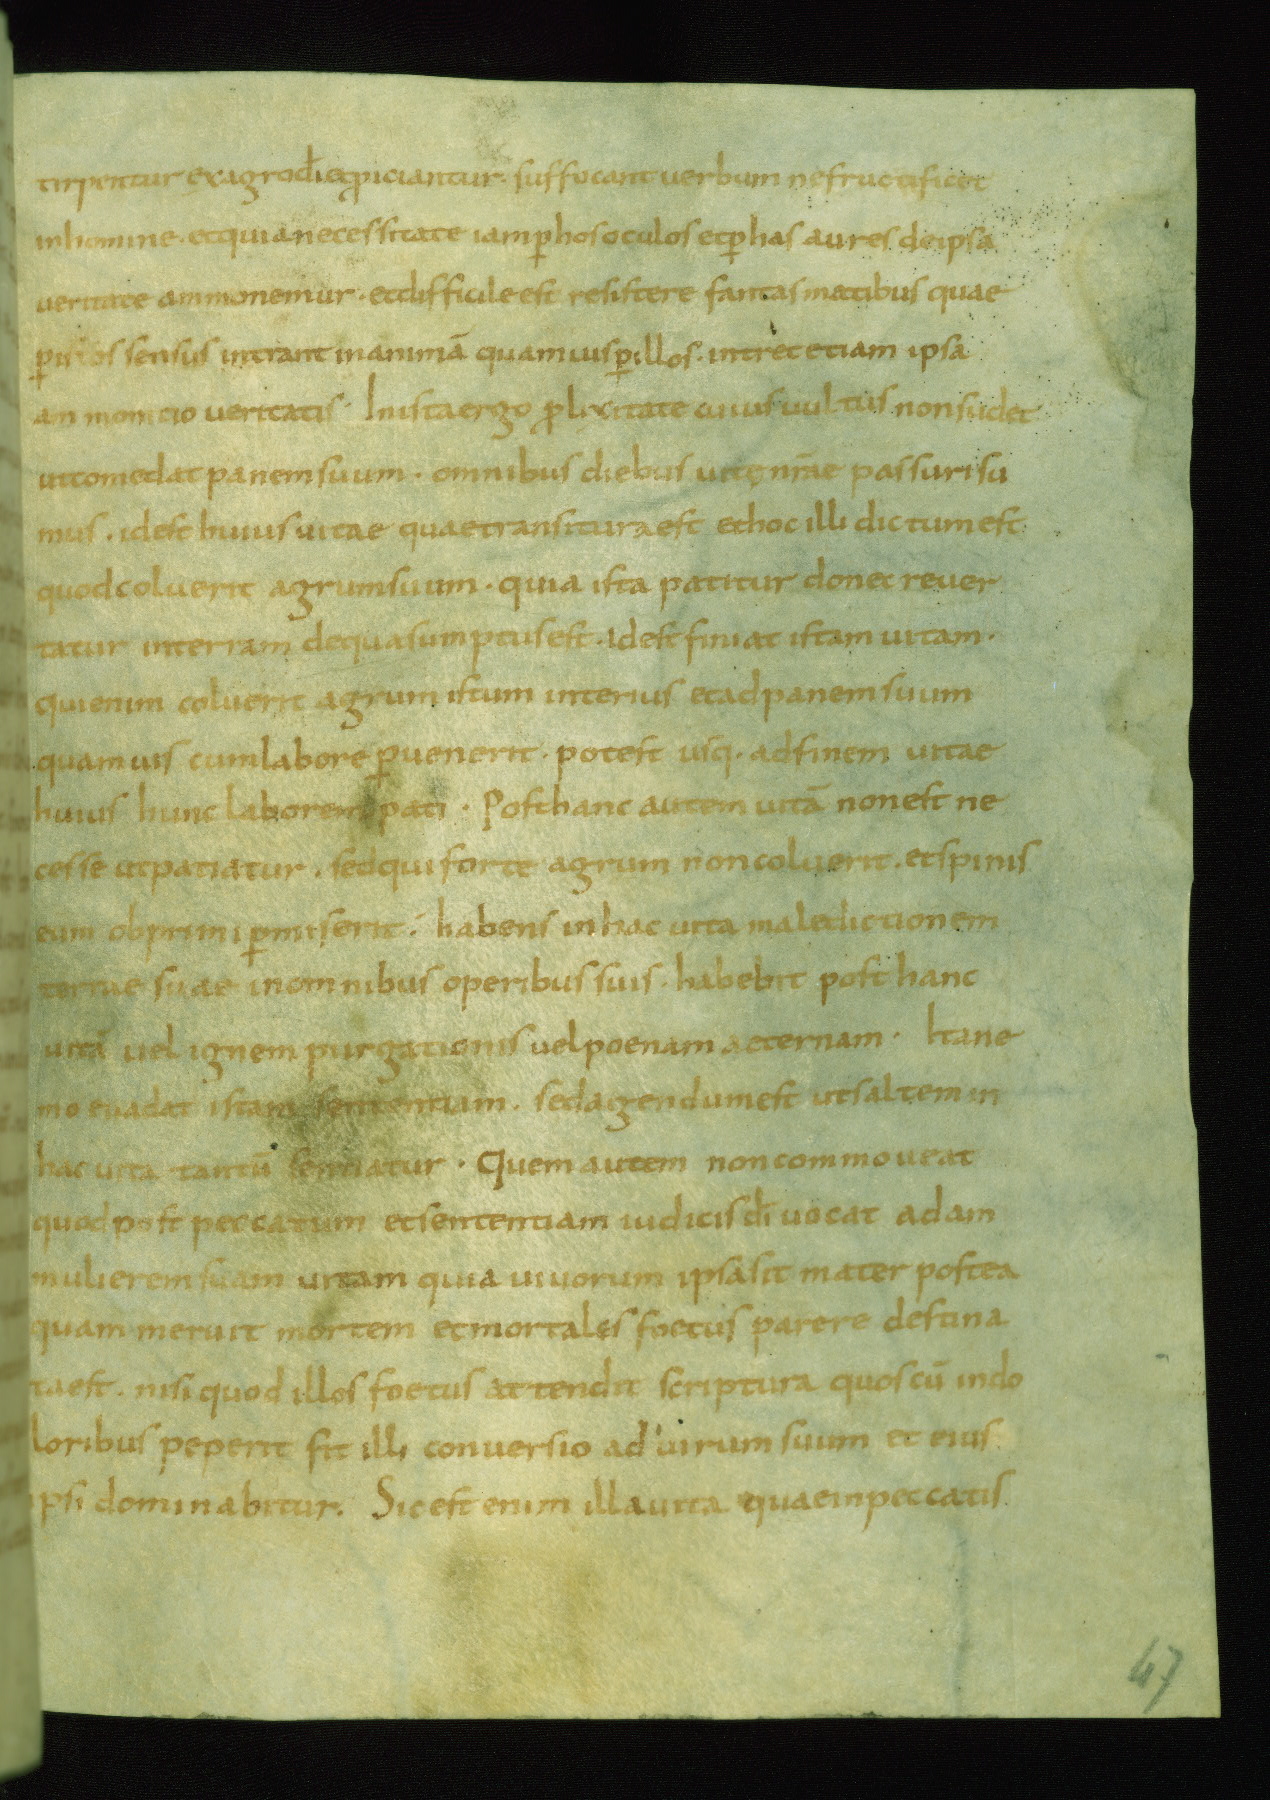 tirpentur exagrod̄i et ꝓiciantur. suffocant uerbum ne fructificet
in homine. et quia necessitate iam ꝑ hos oculos et ꝑ has aures de ipsa
ueritate ammonemur. et difficile est resistere fantasmatibus quae
ꝑ istos sensus intrant in animā quamuis ꝑ illos. intret etiam ipsa
ammonicio ueritatis. In ista ergo ꝓlixitate cuius uultus non sudet
ut comedat panem suum. omnibus diebus uitę nr̄ae passuri su
mus. id est huius uitae quae transitura est et hoc illi dictum est
quod coluerit agrum suum. quia ista patitur donec reuer
tatur in terram de qua sumptus est. Id est finiat istam uitam.
qui enim coluerit agrum istum interius et ad panem suum
quamuis cum labore ꝑuenerit. potest usq. ad finem uitae
huius hunc laborem pati. Post hanc autem uitā non est ne
cesse ut patiatur. sed qui forte agrum non coluerit. et spinis
eum obprimi ꝑmiserit; habens in hac uita maledictionem
terrae suae in omnibus operibus suis. habebit post hanc
uitā uel ignem purgationis uel poenam aeternam. Ita ne
mo euadat istam sententiam. sed agendum est ut saltem in
hac uita tantū sentiatur. Quem autem non commoueat
quod post peccatum et sententiam iudicis dī uocat adam
mulierem suam uitam quia uiuorum ipsa sit mater postea
quam meruit mortem et mortales foetus parere destina
ta est. nisi quod illos foetus attendit scriptura quos cū in do
loribus peperit fit illi conuersio ad uirum suum et eius
ipsi dominabitur. Sic est enim illa uita quae in peccatis
47